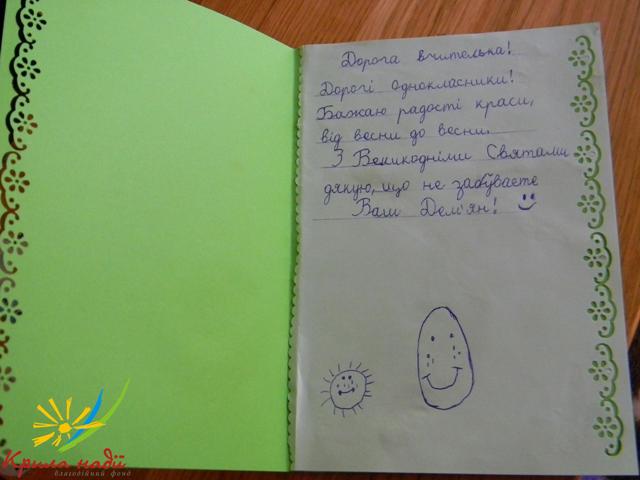 Дорога вчителька!
Дорогі однокласники!
Бажаю радості краси,
від весни до весни.
З Великодніми Святами
дякую, що не забуваєте
Ваш Дем'ян!
Крила надії
благодійний фонд